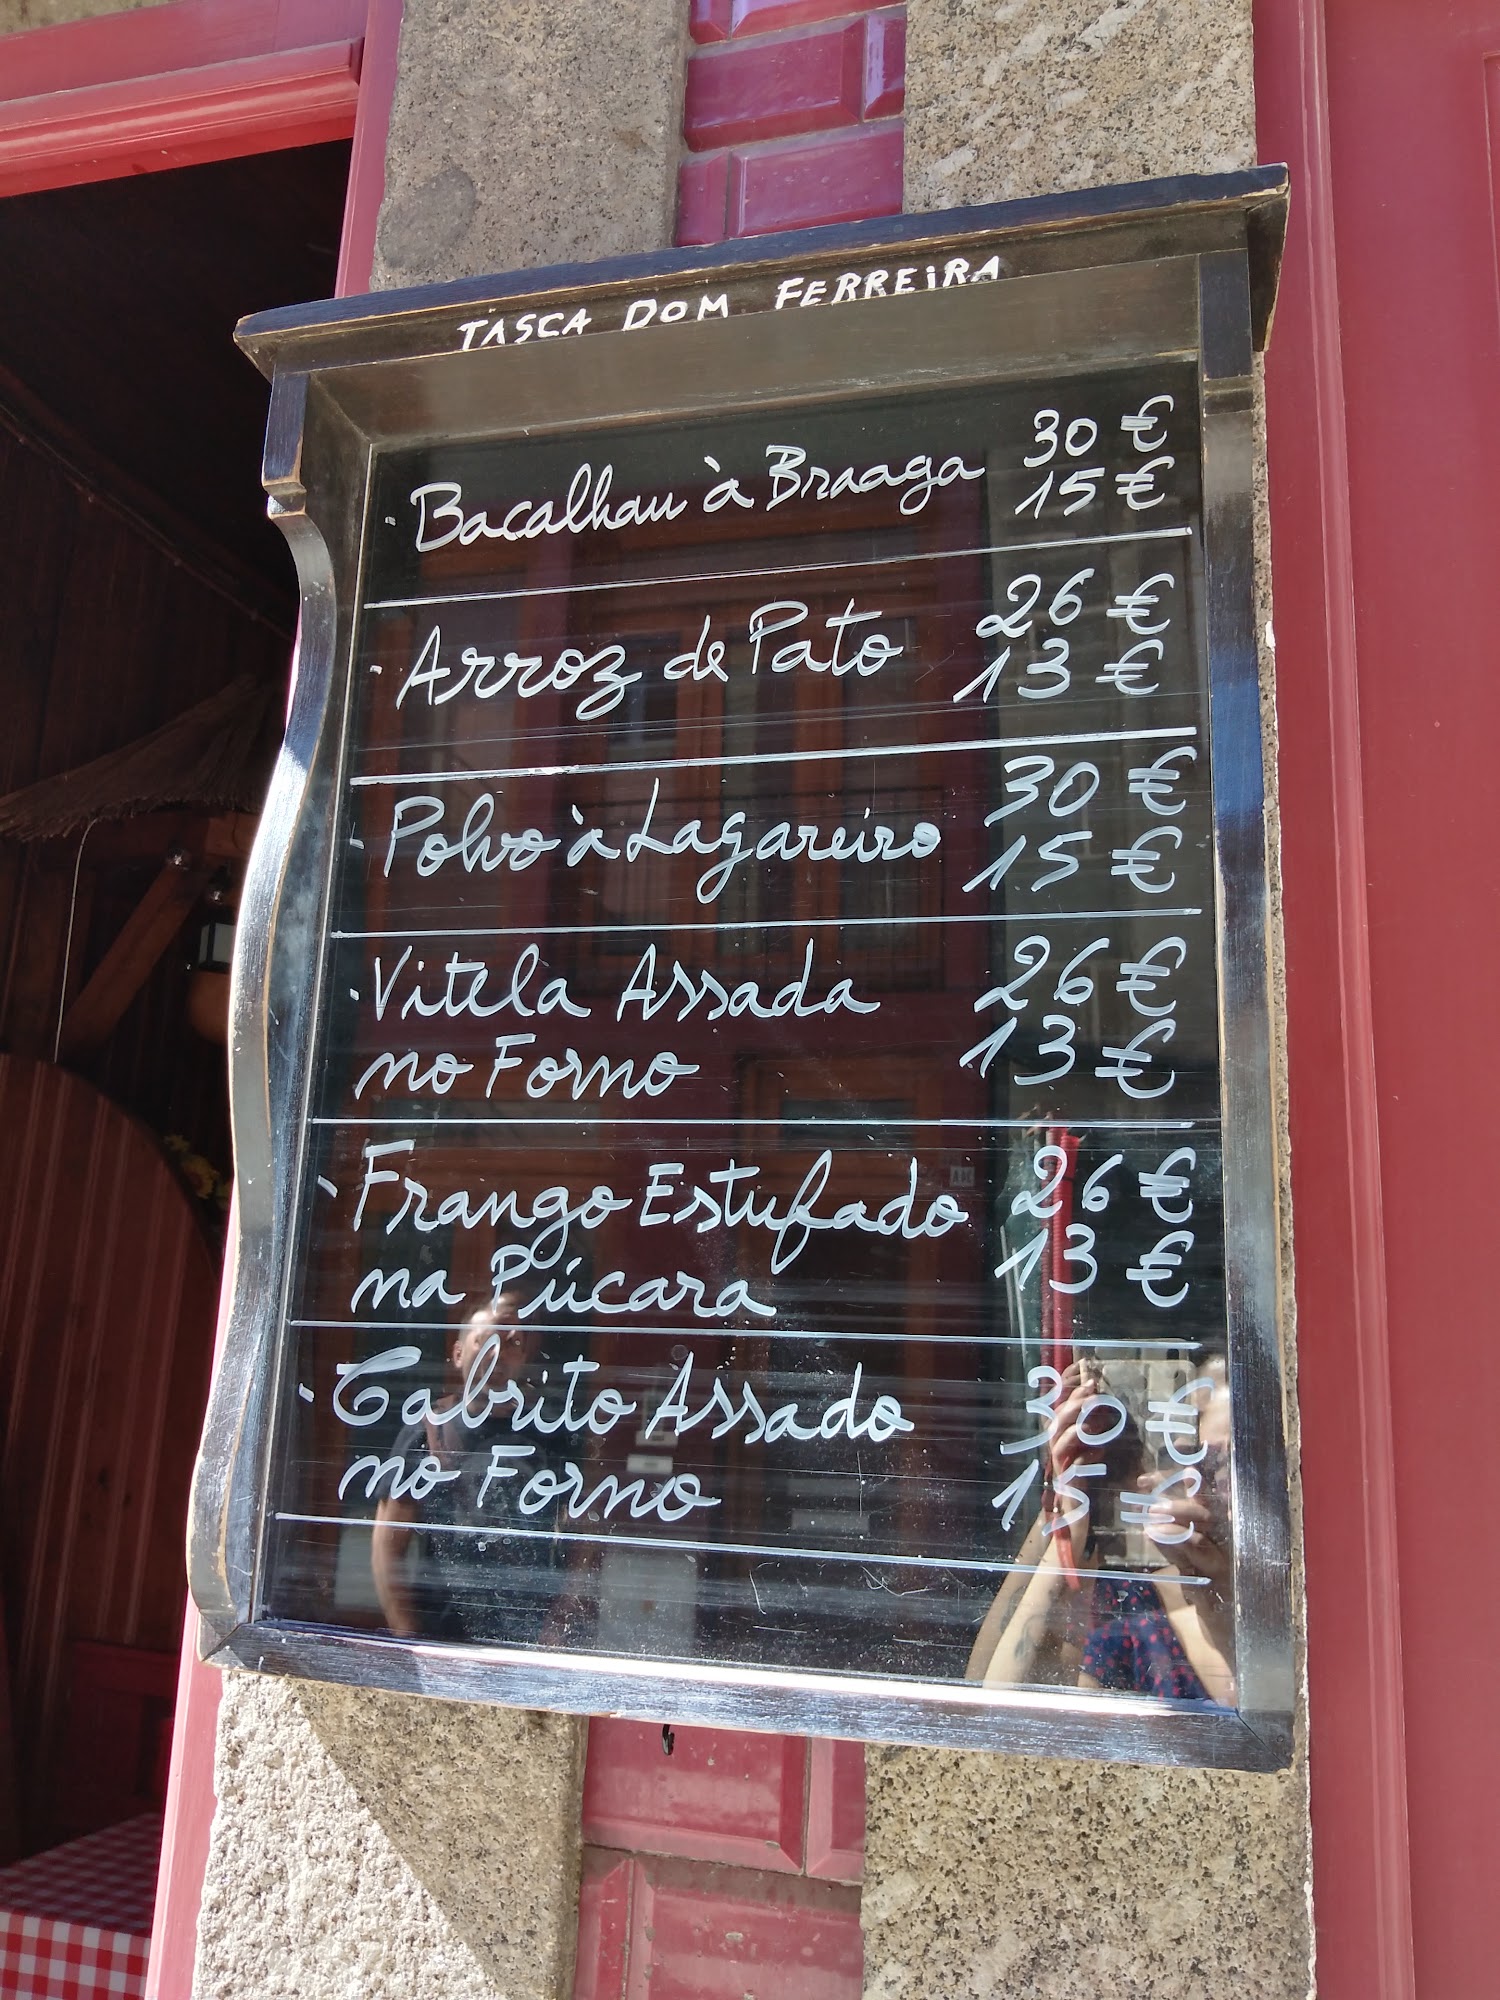 TASCA DOM FERREIRA
· Bacalhau à Braaga 30 €
15 €
· Arroz de Pato 26 €
13 €
· Polvo à Lagareiro 30 €
15 €
· Vitela Assada 26 €
no Forno 13 €
· Frango Estufado 26 €
na Púcara 13 €
· Cabrito Assado 30 €
no Forno 15 €